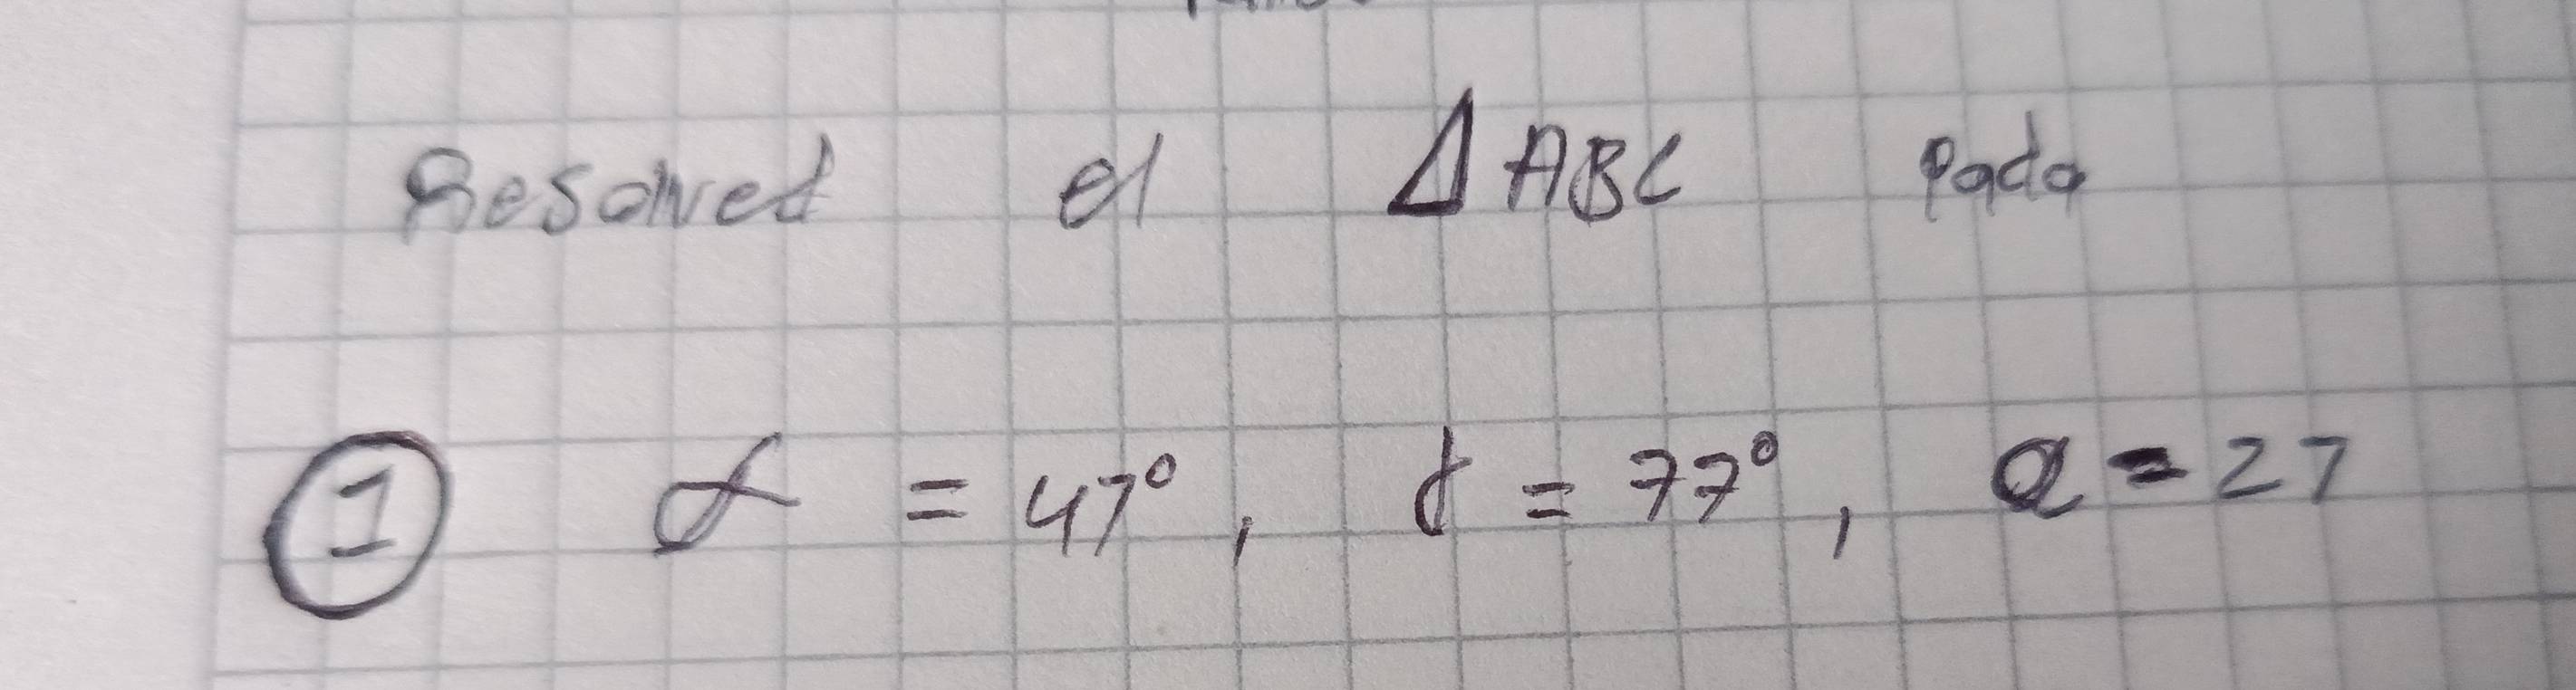 Resolved el Δ ABC pada
① α = 47°, γ = 77°, a = 27